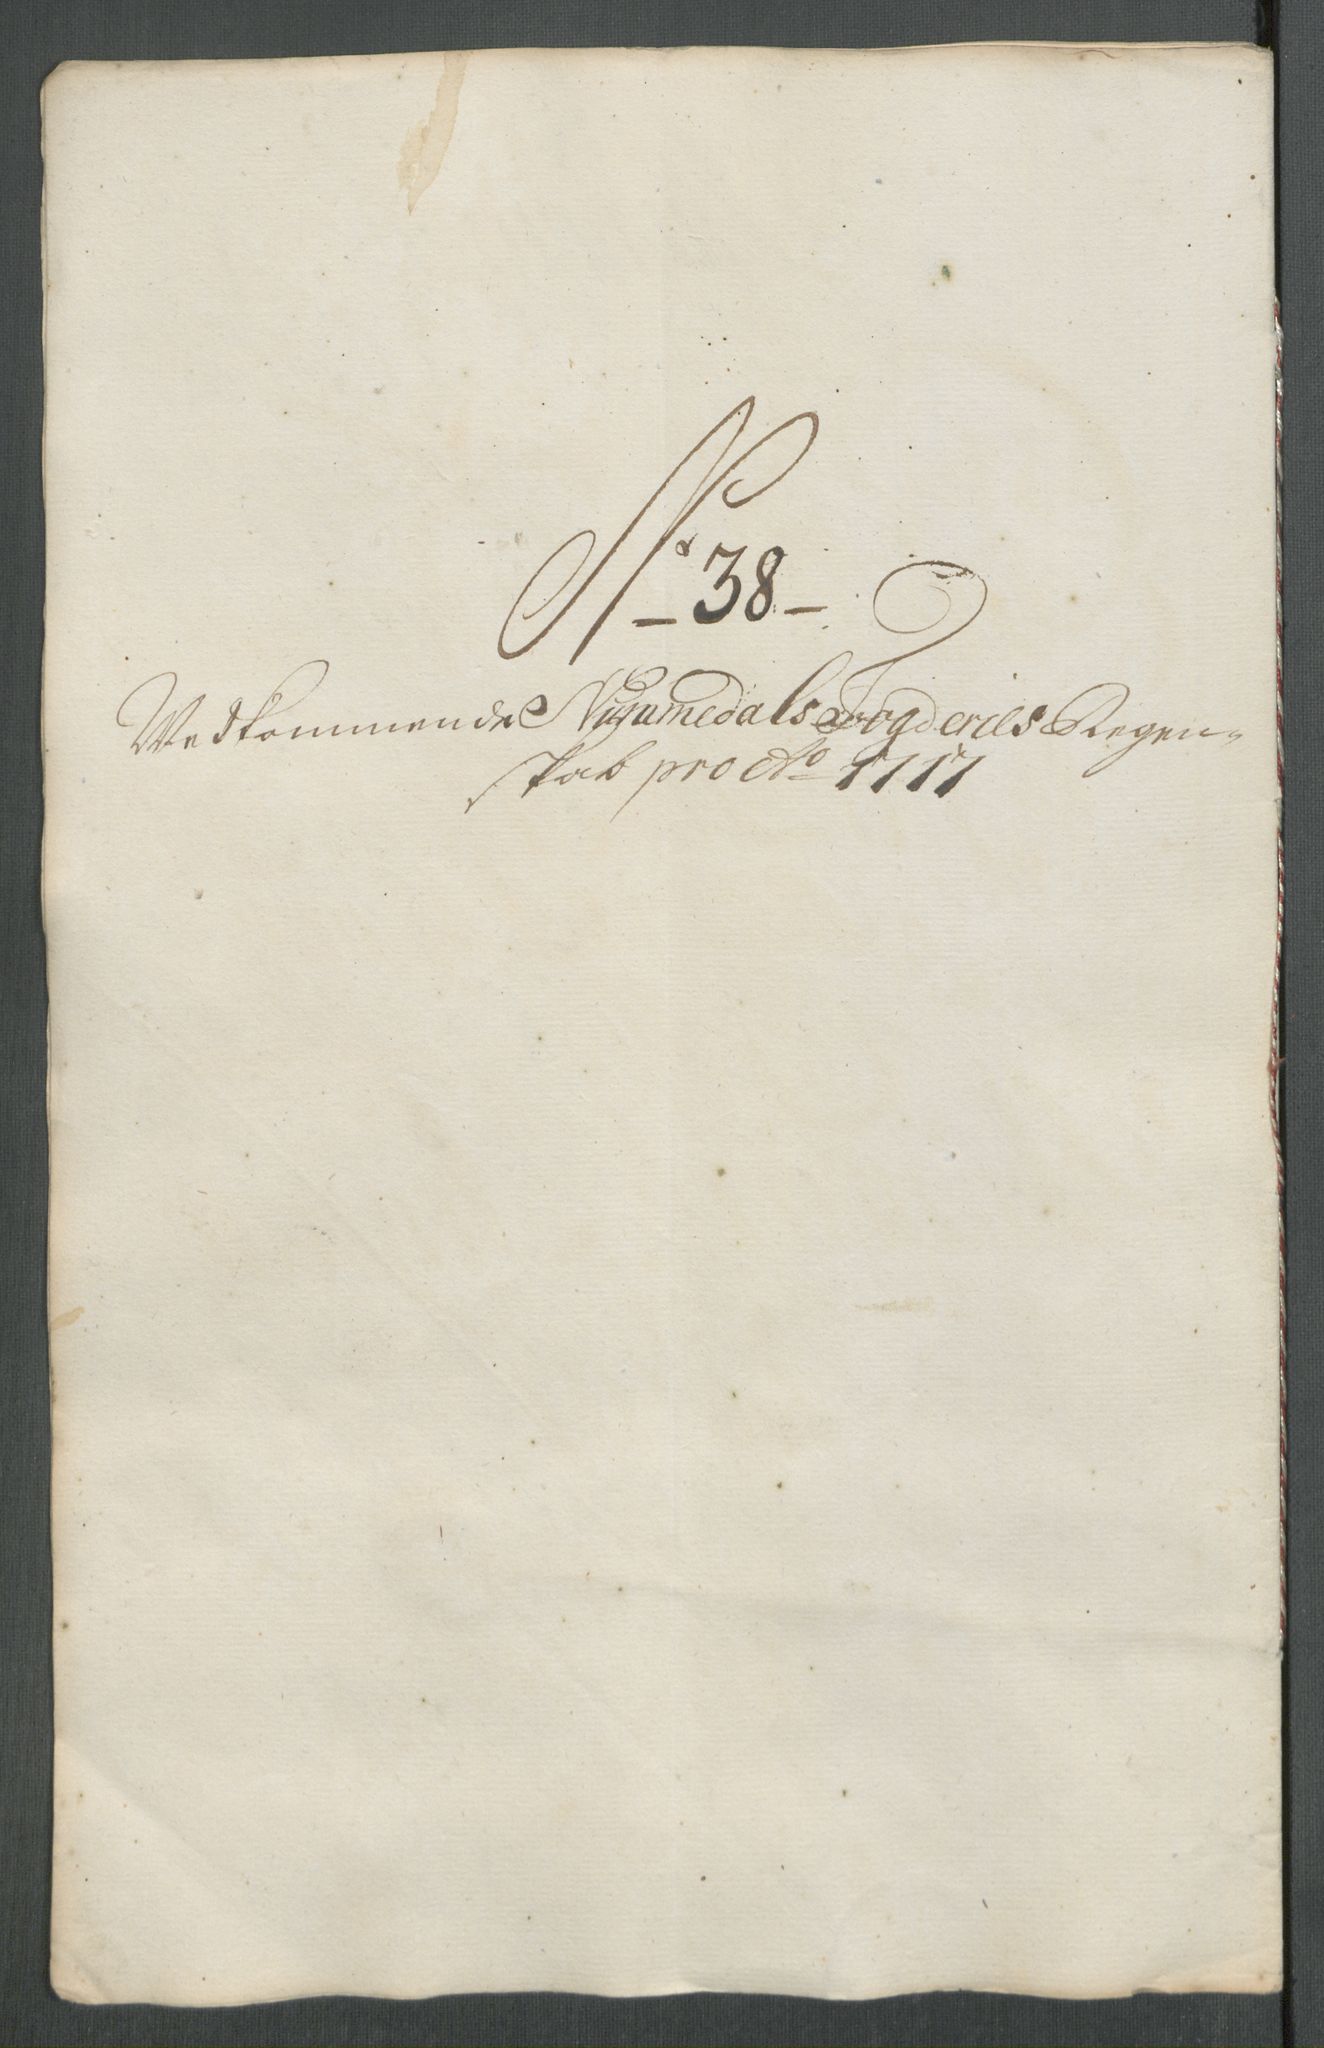 No 38
Vedkommende Nummedals Fogderies Regen-
skab pro Ao 1717